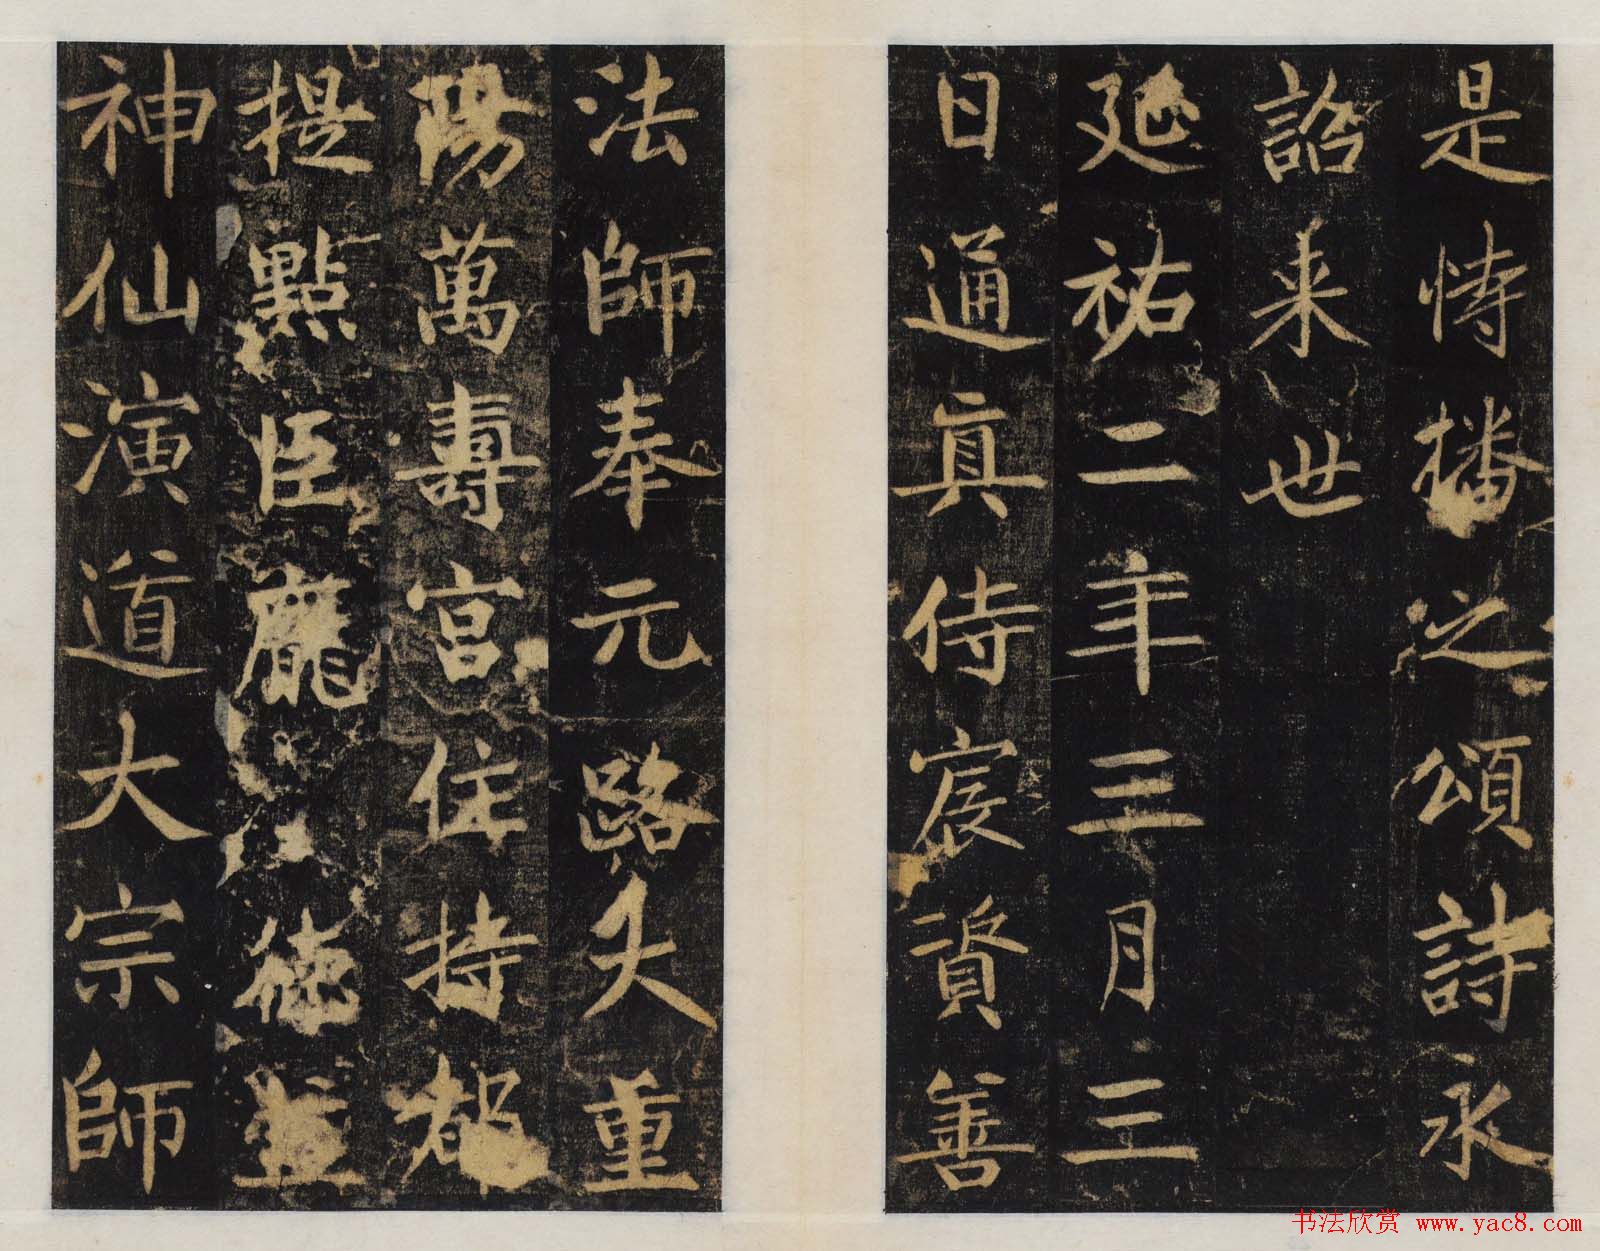 是恃播之頌詩永
詒来世
延祐二年三月三
日通真侍宸資善
法師奉元路大重
陽萬壽宮住持都
提點臣龐德益立
神仙演道大宗師
书法欣赏 www.yac8.com